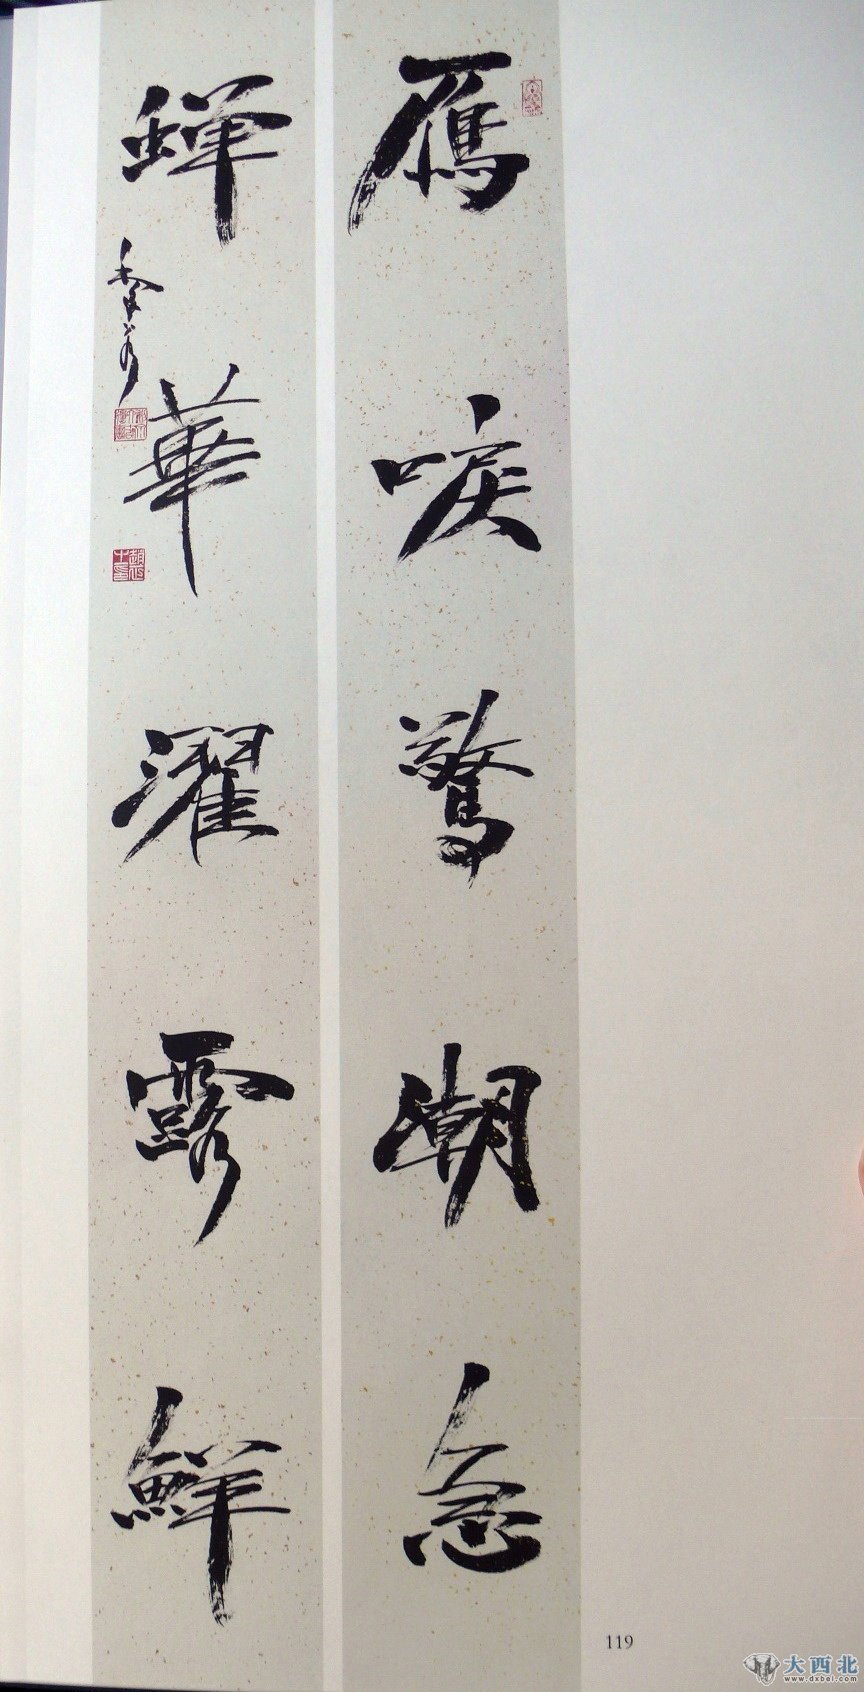 雁唳驚潮急
蟬華濯露鮮
119
大西北
www.dxbei.com